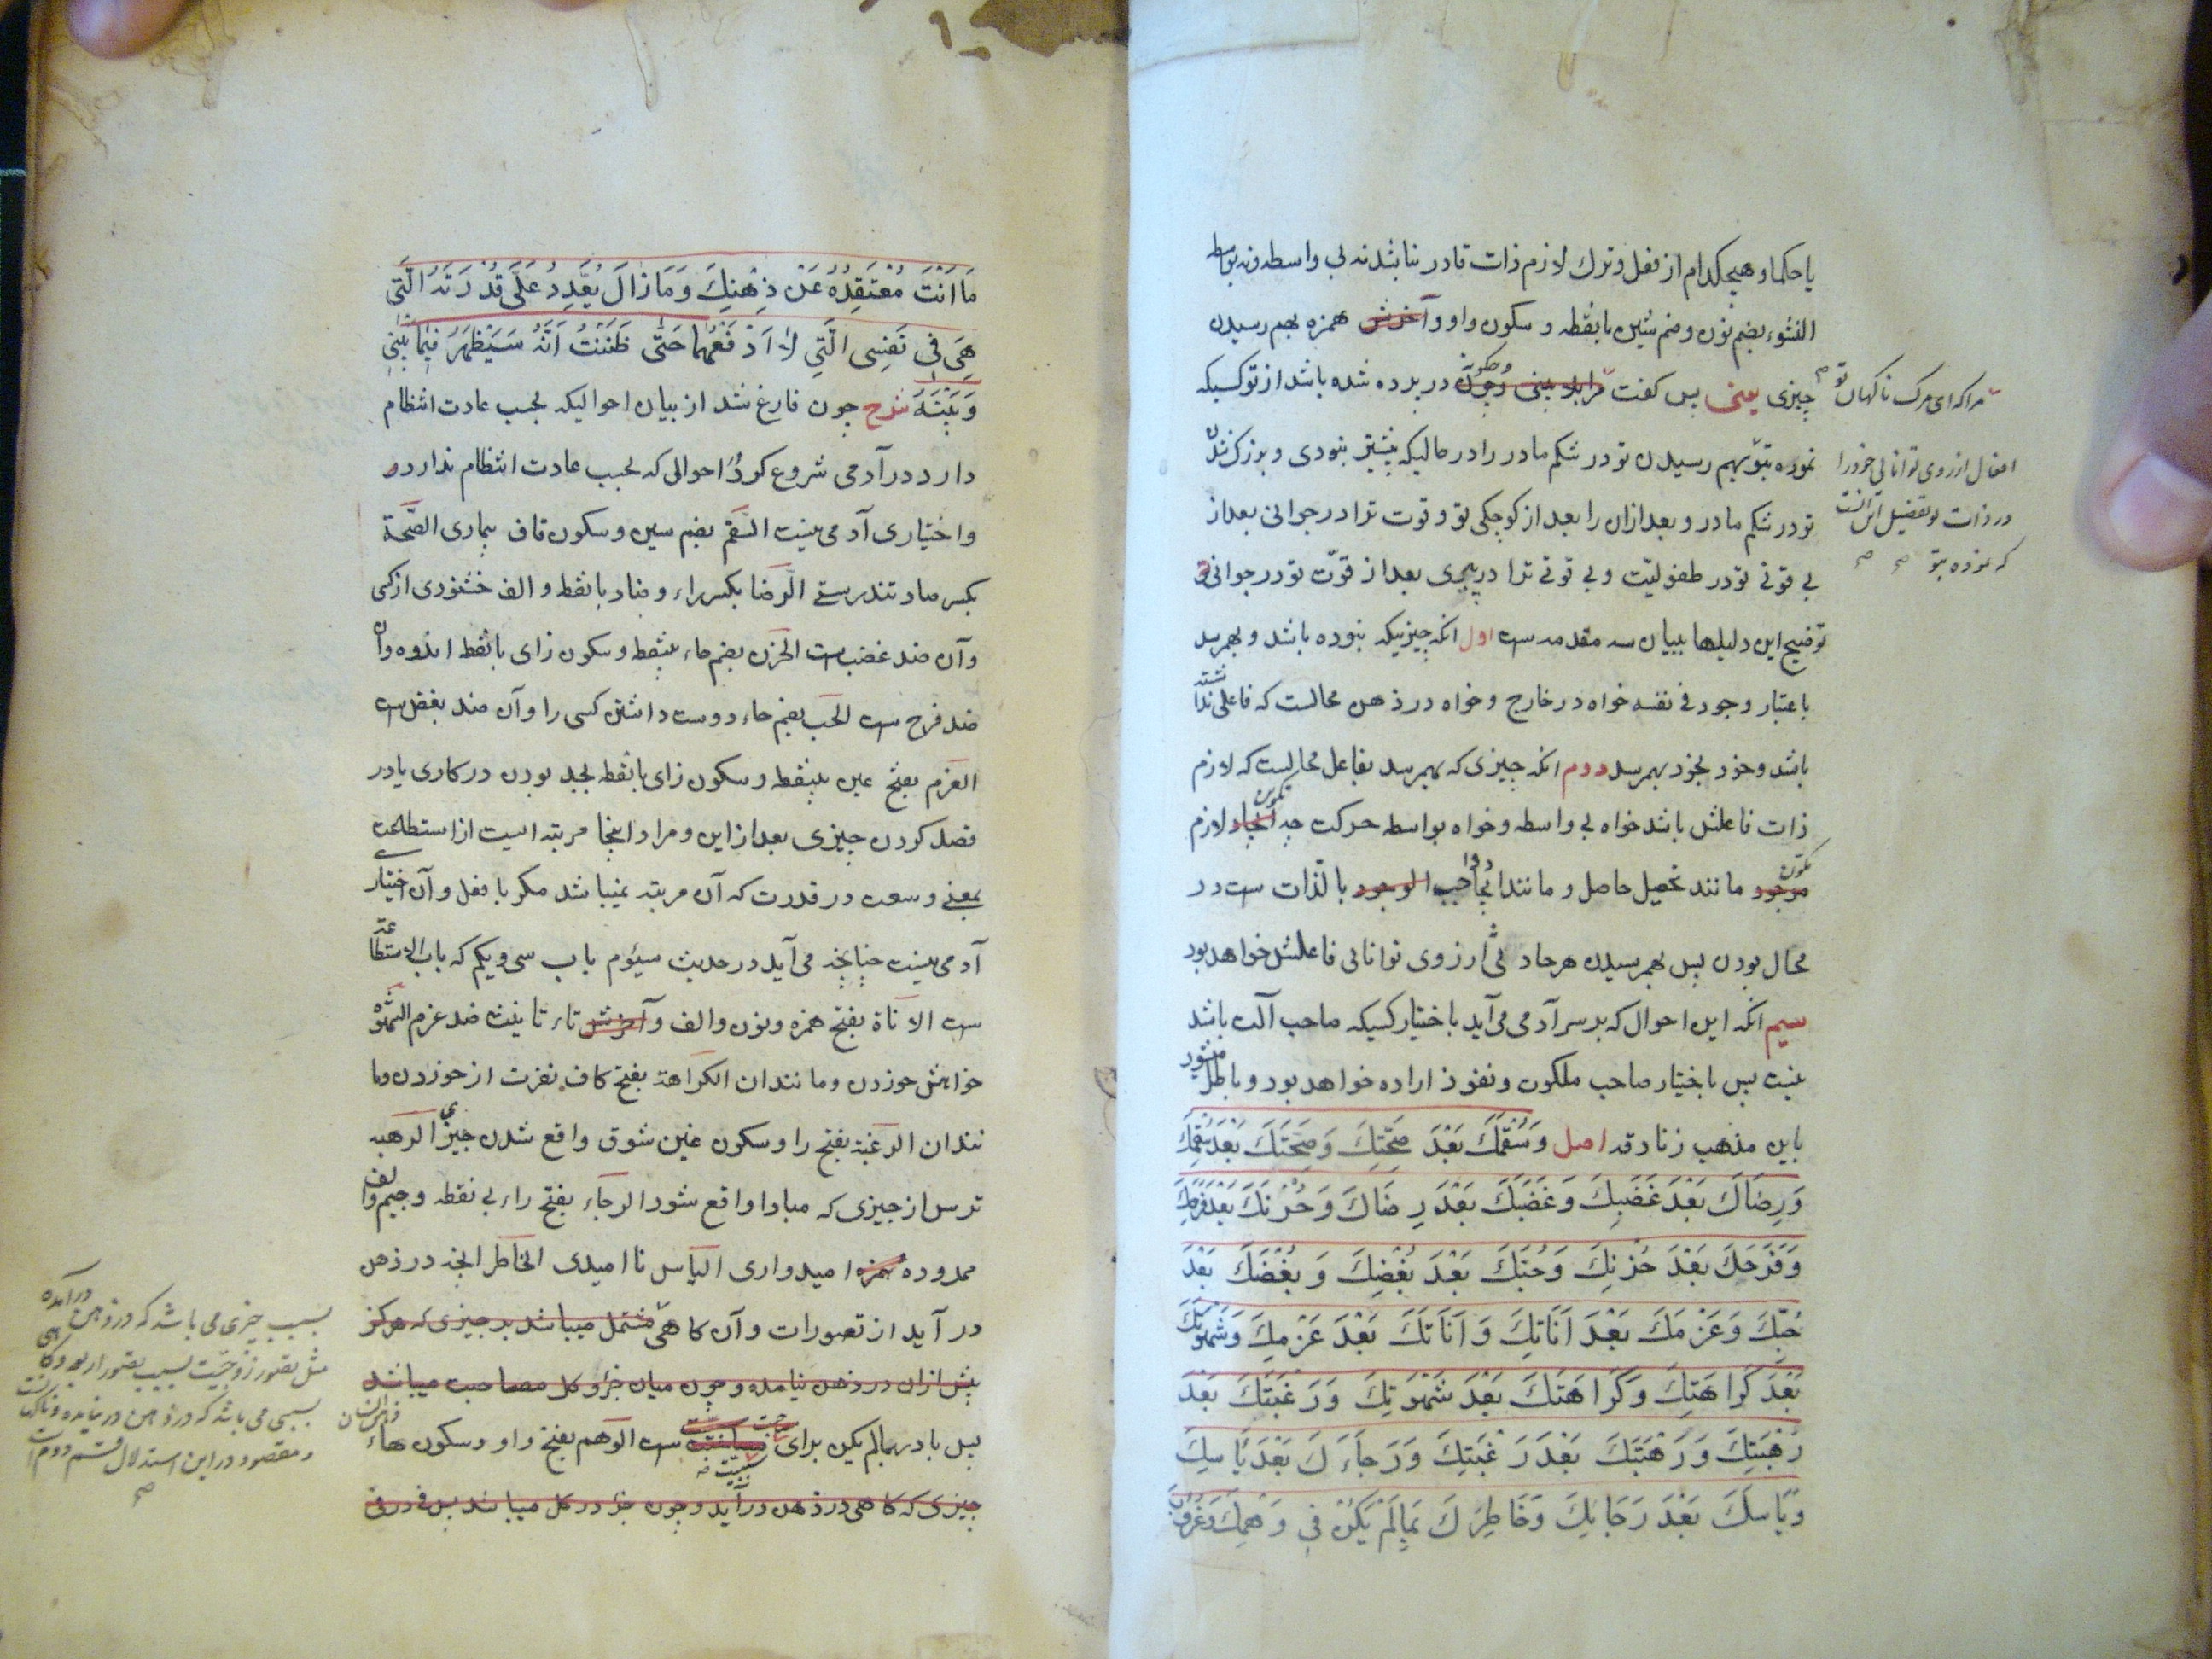 یا حکما و هیچکدام از فعل و ترک لازم ذات قادر نباشد نه بی واسطه و نه بواسطه
النشوء بضم نون و ضم شین با نقطه و سکون واو و آخرش همزه بهم رسیدن
چیزی یعنی پس گفت مرا بدو و چگونه در پرده شده باشد از تو کسیکه
مرا که ای مرگ ناگهان تو
نموده بتو بهم رسیدن تو در شکم مادر را در حالیکه پیشتر نبودی و بزرگ شدن
افعال از روی توانائی خود را
تو در شکم مادر و بعد ازان را بعد از کوچکی تو و قوت ترا در جوانی بعد از
در ذات تو تفصیل این آنست
بی قوتی تو در طفولیّت و بی قوتی ترا در پیری بعد از قوّت تو در جوانی تو
که نموده بتو
توضیح این دلیلها ببیان سه مقدمه ست اول انکه چیزیکه نبوده باشد و بهمرسد
باعتبار وجود فی نفسه خواه در خارج و خواه در ذهن محالست که فاعلی نداشته
باشد و خود بخود بهمرسد دوم انکه چیزی که بهمرسد بفاعل محالیست که لازم
ذات فاعلش باشد خواه بی واسطه و خواه بواسطه حرکت چه ایجاد تکوین لازم
موجود مکون مانند تحصیل حاصل و مانند ایجاد واجب الوجود بالذّات ست در
محال بودن پس بهمرسیدن هر حادثی از روی توانائی فاعلش خواهد بود
سیم انکه این احوال که بر سر آدمی می آید باختیار کسیکه صاحب آلت باشد
نیست پس باختیار صاحب ملکوت و نفوذ اراده خواهد بود و باطل میشود
باین مذهب زنادقه اصل وَسُقْمَكَ بَعْدَ صِحَّتِكَ وَصِحَّتَكَ بَعْدَ سُقْمِكَ
وَرِضَاكَ بَعْدَ غَضَبِكَ وَغَضَبَكَ بَعْدَ رِضَاكَ وَحُزْنَكَ بَعْدَ فَرَحِكَ
وَفَرَحَكَ بَعْدَ حُزْنِكَ وَحُبَّكَ بَعْدَ بُغْضِكَ وَبُغْضَكَ بَعْدَ
حُبِّكَ وَعَزْمَكَ بَعْدَ اَنَاتِكَ وَاَنَاتَكَ بَعْدَ عَزْمِكَ وَشَهْوَتَكَ
بَعْدَ كَرَاهَتِكَ وَكَرَاهَتَكَ بَعْدَ شَهْوَتِكَ وَرَغْبَتَكَ بَعْدَ
رَهْبَتِكَ وَرَهْبَتَكَ بَعْدَ رَغْبَتِكَ وَرَجَاءَكَ بَعْدَ يَأسِكَ
وَيَأسَكَ بَعْدَ رَجَائِكَ وَخَاطِرَكَ بِمَا لَمْ يَكُنْ فِي وَهْمِكَ وَعُزُوبَ
مَا اَنْتَ مُعْتَقِدُهُ عَنْ ذِهْنِكَ وَمَا زَالَ يُعَدِّدُ عَلَيَّ قُدْرَتَهُ الَّتِي
هِيَ فِي نَفْسِي الَّتِي لَا اَدْفَعُهَا حَتَّى ظَنَنْتُ اَنَّهُ سَيَظْهَرُ فِيمَا بَيْنِي
وَبَيْنَهُ شرح چون فارغ شد از بیان احوالیکه بحسب عادت انتظام
دارد در آدمی شروع کرد در احوالی که بحسب عادت انتظام ندارد
و اختیاری آدمی نیست السّقم بضم سین و سکون قاف بیماری الصّحّة
بکسر صاد تندرستی الرّضا بکسر راء و ضاد با نقطه و الف خشنودی از کسی
و آن ضد غضب ست الحزن بضم حاء بینقطه و سکون زای با نقطه اندوه و آن
ضد فرح ست الحب بضم حاء دوست داشتن کسی را و آن ضد بغض ست
العزم بفتح عین بینقطه و سکون زای با نقطه بجد بودن در کاری یا در
قصد کردن چیزی بعد از این و مراد اینجا مرتبه ایست از استطاعت
بمعنی وسعت در قدرت که آن مرتبه نمیباشد مگر با فعل و آن اختیار
آدمی نیست چنانچه می آید در حدیث سیوم باب سی و یکم که باب الاستطاعة
ست الاناة بفتح همزه و نون و الف و آخرش تاء تانیث ضد عزم الشّهوة
خواهش خوردن و مانند ان الکراهة بفتح کاف نفرت از خوردن و ما
نند ان الرغبة بفتح را و سکون غین شوق واقع شدن چیزی الرهبه
ترس از چیزی که مبادا واقع شود الرجاء بفتح راء بی نقطه و جیم و الف
ممدوده همزه امیدواری الیأس ناامیدی الخاطر انچه در ذهن
در آید از تصورات و آن گاهی مشتمل میباشد بر چیزی که هرگز
پیش ازان در ذهن نیامده و چون میان جزؤ و کل مصاحبت میباشد
پس با در بما لم یکن برای ست الوهم بفتح واو و سکون هاء
چیزی که گاهی در ذهن در آید و چون جزء در کل میباشد پس فی در فی
بسبب چیزی می باشد که در ذهن درآمده
مثل تصور زوجیّت بسبب تصور اربعه و گاهی
بسببی می باشد که در ذهن در نیامده
و مقصود در این استدلال قسم دوم است